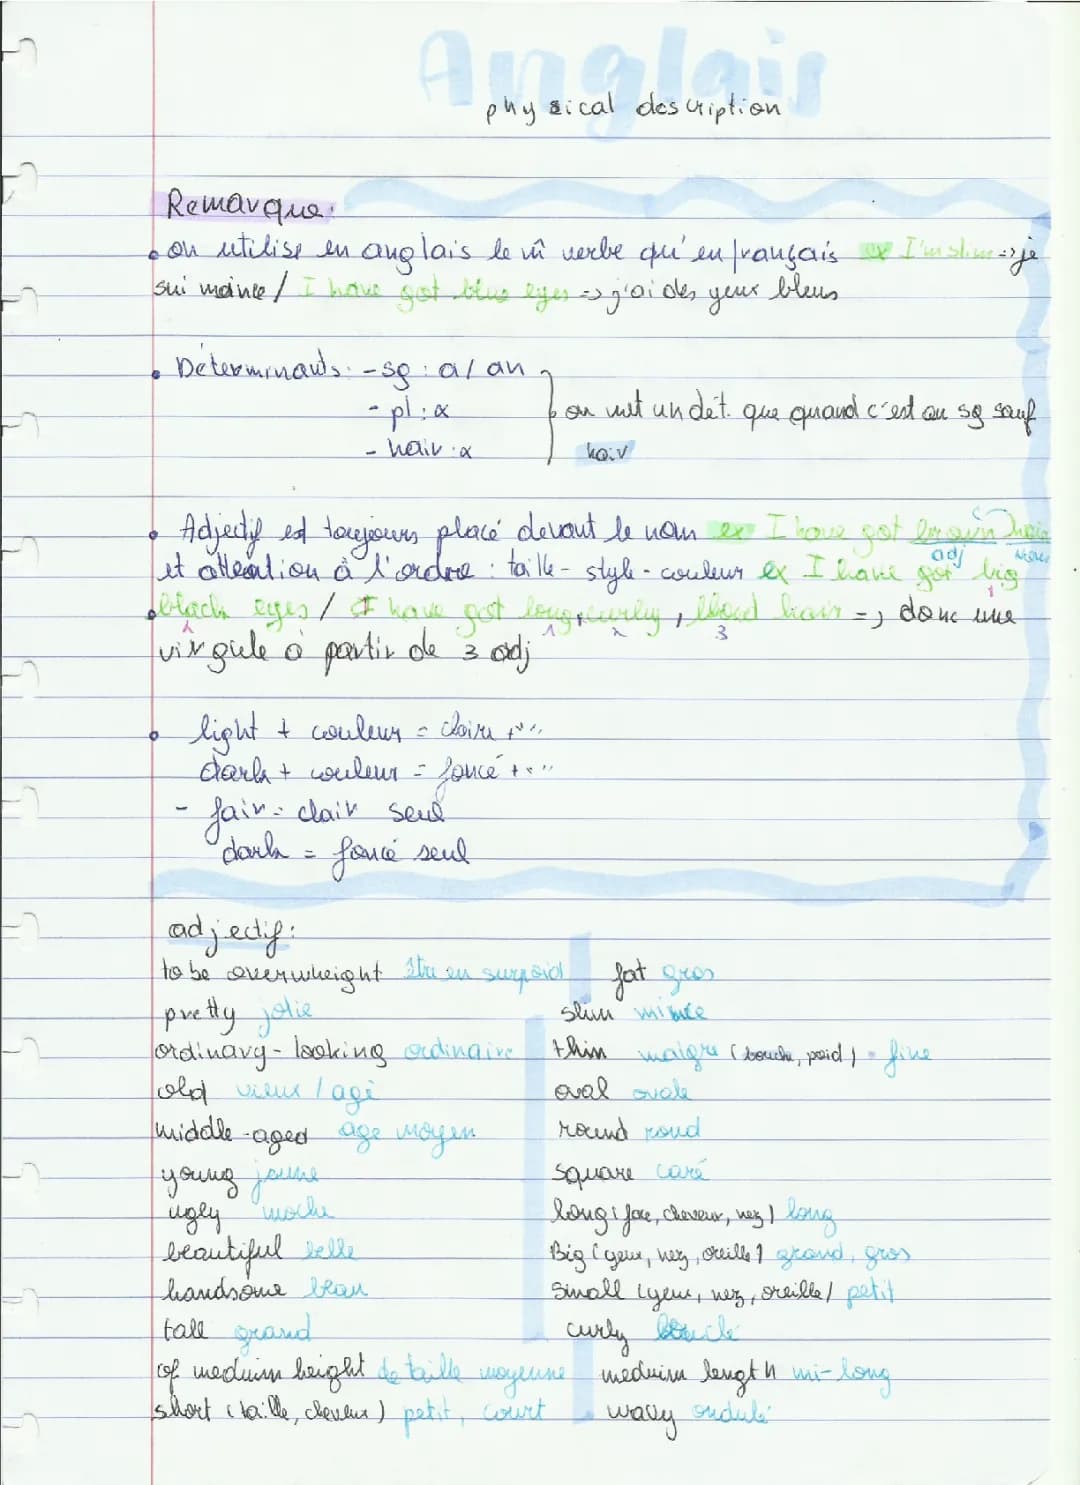 Anglais
physical description
Remarque:
• on utilise en anglais le m̂ verbe qu'en français ex I'm slim => je
sui meince / I have got blue eyes => j'ai des yeux bleus
• Déterminants: - sg : a / an
- pl : x
- hair : x
on met un dét. que quand c'est au sg sauf
hair
• Adjectif est toujours placé devant le nom ex I have got brown hair
adj nom
et attention à l'ordre : taille - style - couleur ex I have got big
1
black eyes / I have got long, curly, blond hair => donc une
2 1 2 3
virgule à partir de 3 adj
• light + couleur = claire + "..."
dark + couleur = foncé + "..."
- fair = clair seul
dark = foncé seul
adjectif:
to be overwheight être en surpoid fat gros
pretty jolie slim mince
ordinary-looking ordinaire thin maigre (bouche, poid) = fine
old vieux / agé oval ovale
middle-aged age moyen round rond
young jeune square caré
ugly moche long (face, cheveux, nez) long
beautiful belle Big (yeux, nez, oreille) grand, gros
handsome beau Small (yeux, nez, oreille) petit
tall grand curly bouclé
of meduim height de taille moyenne meduim length mi-long
short (taille, cheveux) petit, court wavy ondulé